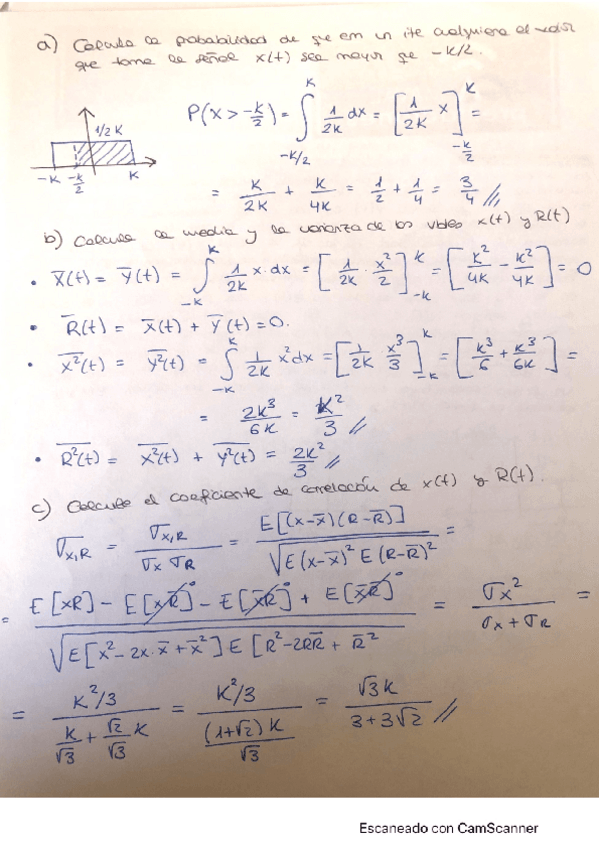 a) Calcula la probabilidad de que em un ite cualquiera el valor
que tome la señal x(t) sea mayor que -K/2.
1/2K
-K -K/2 K
P(x > -K/2) = ∫_{-K/2}^{K} 1/2K dx = [1/2K x]_{-K/2}^{K} =
= K/2K + K/4K = 1/2 + 1/4 = 3/4 //
b) Calcula la media y la varianza de los x(t) y R(t)
• X̄(t) = Ȳ(t) = ∫_{-K}^{K} 1/2K x·dx = [1/2K · x²/2]_{-K}^{K} = [K²/4K - K²/4K] = 0
• R̄(t) = X̄(t) + Ȳ(t) = 0.
• \overline{X²}(t) = \overline{Y²}(t) = ∫_{-K}^{K} 1/2K x² dx = [1/2K x³/3]_{-K}^{K} = [K³/6 + K³/6K] =
= 2K³/6K = K²/3 //
• \overline{R²}(t) = \overline{X²}(t) + \overline{Y²}(t) = 2K²/3 //
c) Calcule el coeficiente de correlación de x(t) y R(t).
σ_{x,R} = σ_{x,R}/(σ_x σ_R) = E[(x-x̄)(R-R̄)]/√(E(x-x̄)² E(R-R̄)²) =
= (E[xR] - E[xR̄]⁰ - E[x̄R]⁰ + E[x̄R̄]⁰)/√(E[x²-2x·x̄+x̄²] E[R²-2RR̄+R̄²) = σ_x²/(σ_x + σ_R) =
= (K²/3)/(K/√3 + √2/√3 K) = (K²/3)/((1+√2)K/√3) = √3K/(3+3√2) //
Escaneado con CamScanner